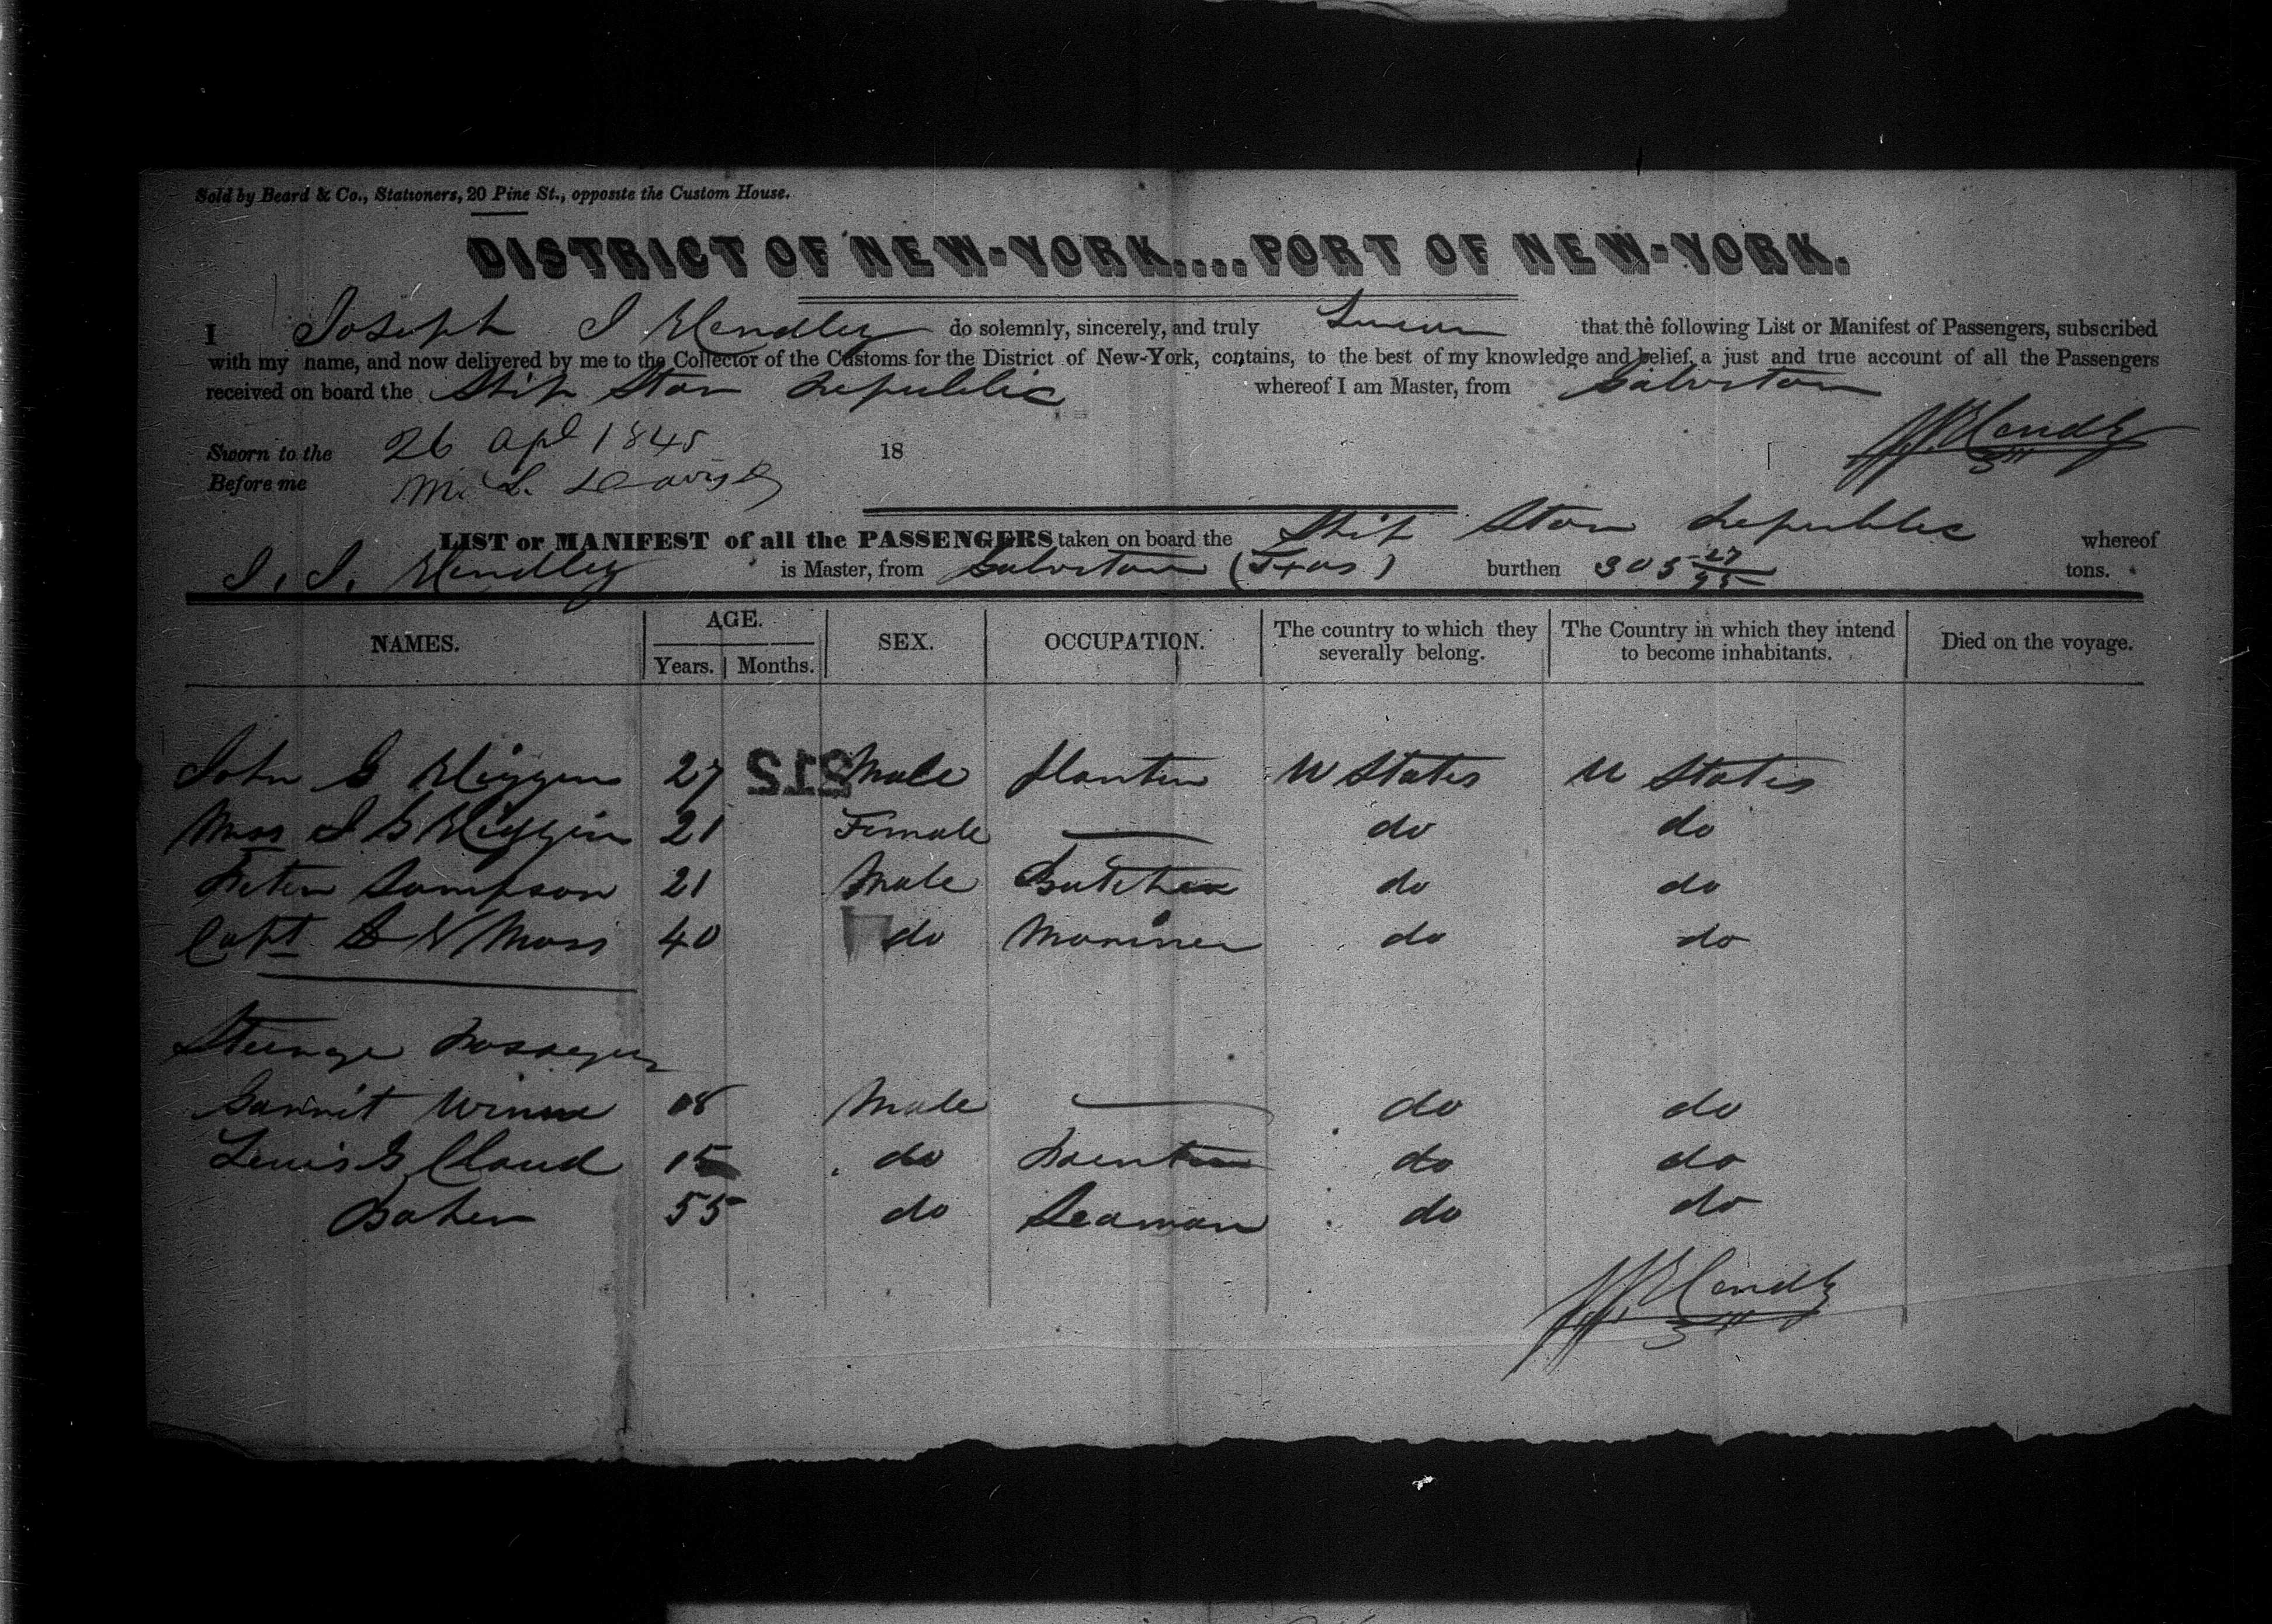 Sold by Beard & Co., Stationers, 20 Pine St., opposite the Custom House.
DISTRICT OF NEW-YORK....PORT OF NEW-YORK.
I Joseph J Hendley do solemnly, sincerely, and truly Swear that the following List or Manifest of Passengers, subscribed
with my name, and now delivered by me to the Collector of the Customs for the District of New-York, contains, to the best of my knowledge and belief, a just and true account of all the Passengers
received on board the Ship Star Republic whereof I am Master, from Galveston
J J Hendley
Sworn to the 26 Apl 1845 18
Before me M. L. Davis
LIST or MANIFEST of all the PASSENGERS taken on board the Ship Star Republic whereof
J. J. Hendley is Master, from Galveston (Texas) burthen 305 27/95 tons.
NAMES. AGE. SEX. OCCUPATION. The country to which they severally belong. The Country in which they intend to become inhabitants. Died on the voyage.
Years. Months.
212
John G Higgins 27 Male Planter U States U States
Mrs J G Higgins 21 Female — do do
Peter Sampson 21 Male Butcher do do
Capt N Moss 40 do Mariner do do
Steerage Passengers
Garrit Winne 18 Male — do do
Lewis G Cloud 15 do do do
Baker 55 do Seaman do do
J J Hendley